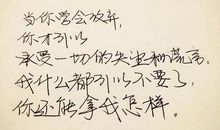 当你学会放弃，
你才可以
承受一切的失望和谎言，
我什么都可以不要了，
你还能拿我怎样。